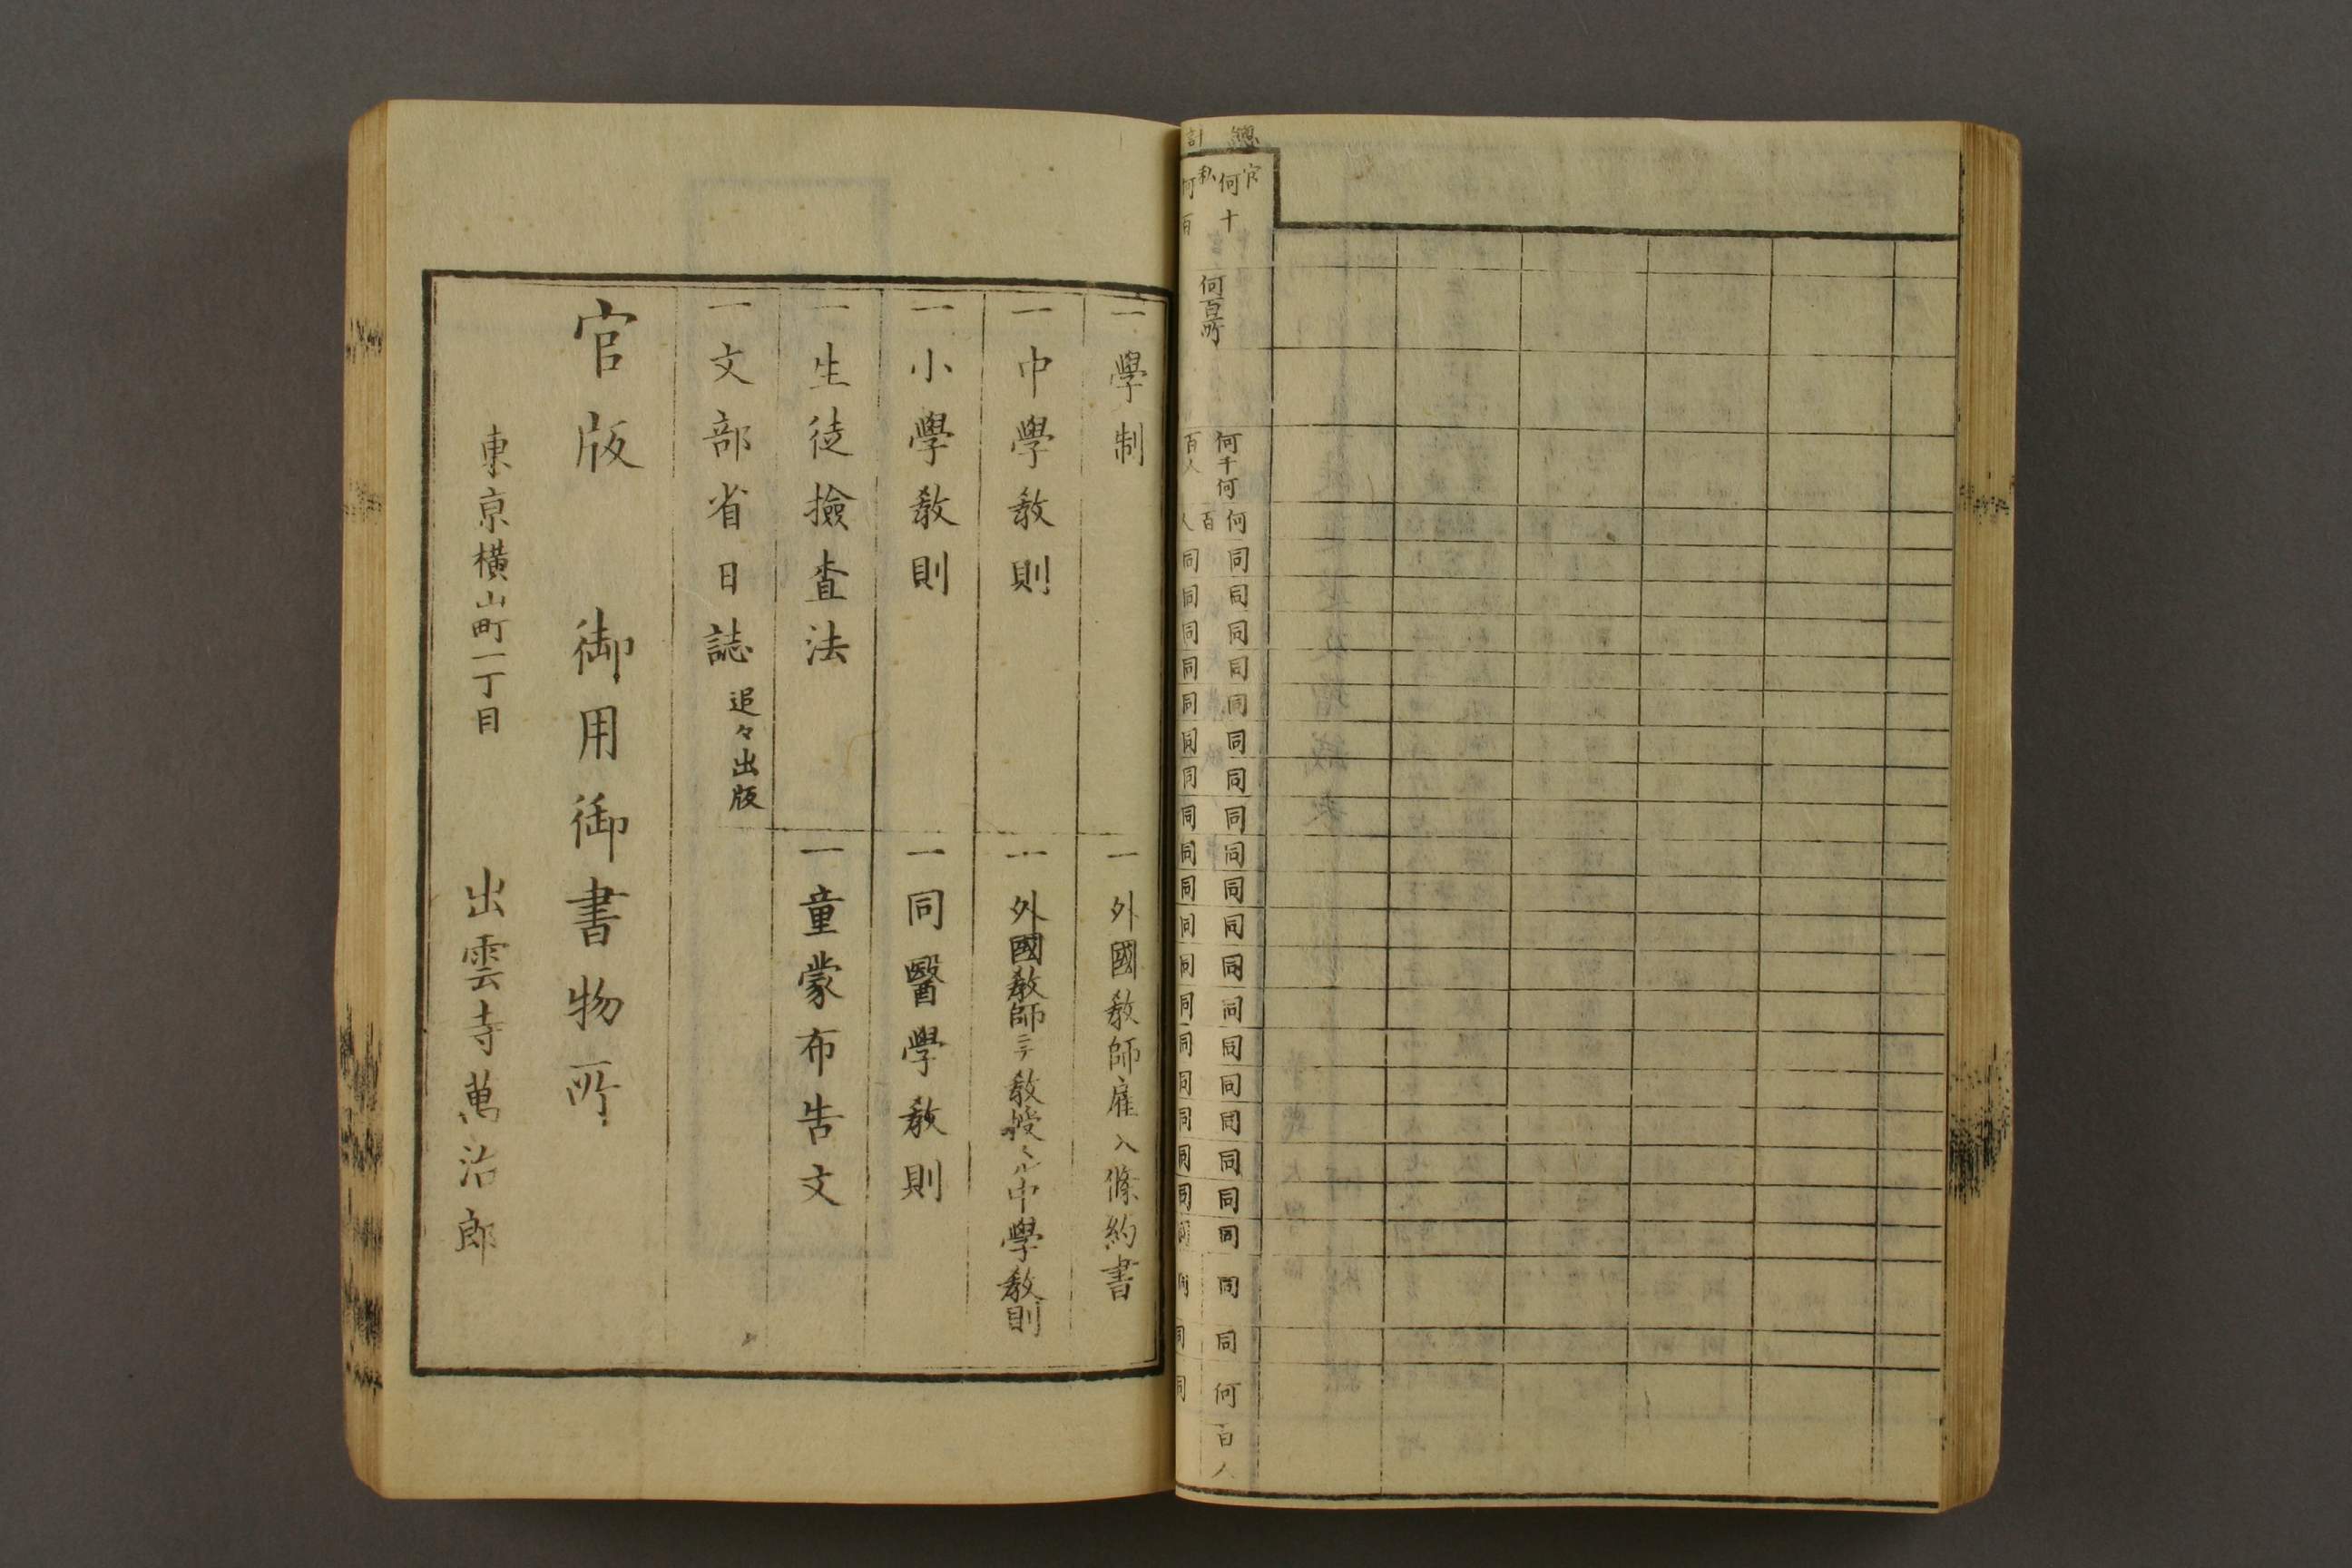 總計
官
何十
私
何百
何百所
何千何
百人
何百人
同同同同同同同同同同同同同同同同同同同同同
何百人
一學制
一外國教師雇入條約書
一中學教則
一外國教師ニテ教授スル中學教則
一小學教則
一同醫學教則
一生徒撿査法
一童蒙布告文
一文部省日誌 追々出版
官版 御用御書物所
東京橫山町一丁目 出雲寺萬治郎